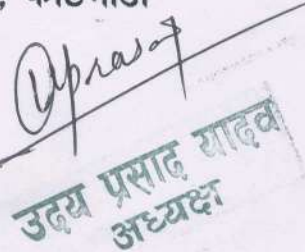 Uprasad
उदय प्रसाद यादव
अध्यक्ष